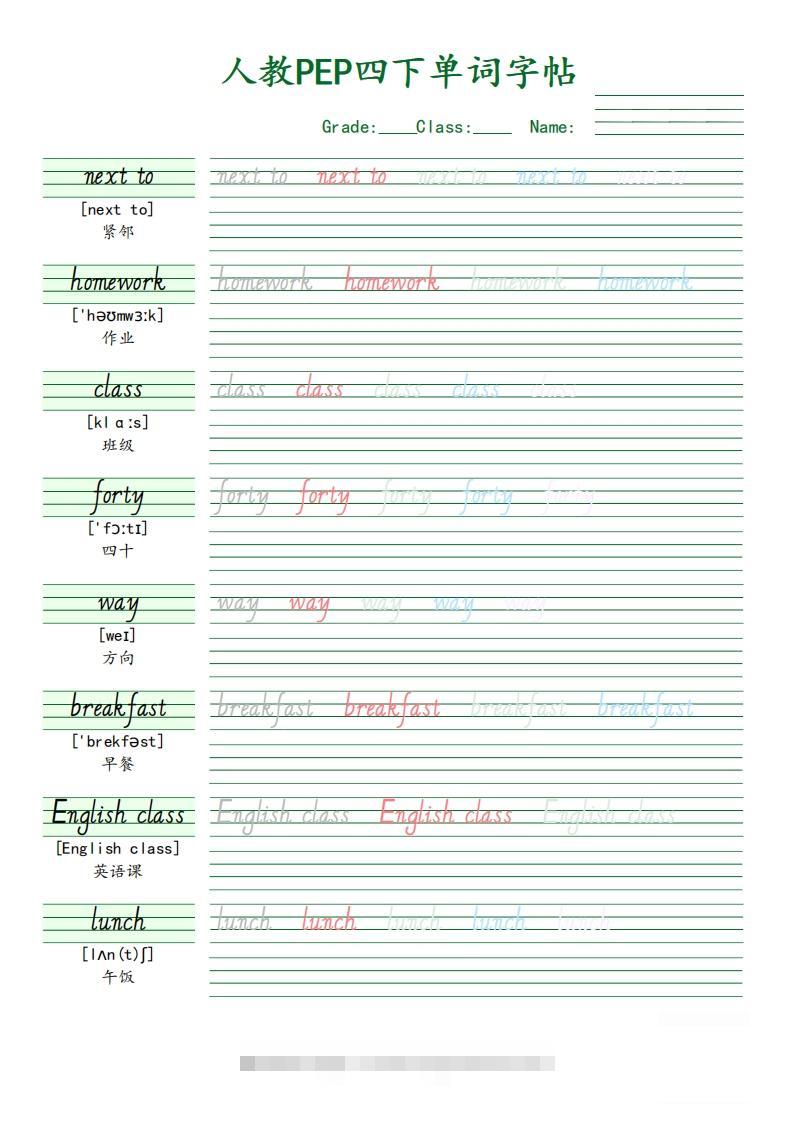 人教PEP四下单词字帖
Grade:____Class:____ Name:
next to next to next to next to next to next to
[next to]
紧邻
homework homework homework homework homework
['həʊmwɜːk]
作业
class class class class class class
[klɑːs]
班级
forty forty forty forty forty forty
['fɔːtɪ]
四十
way way way way way way
[weɪ]
方向
breakfast breakfast breakfast breakfast breakfast
['brekfəst]
早餐
English class English class English class English class
[English class]
英语课
lunch lunch lunch lunch lunch lunch
[lʌn(t)ʃ]
午饭